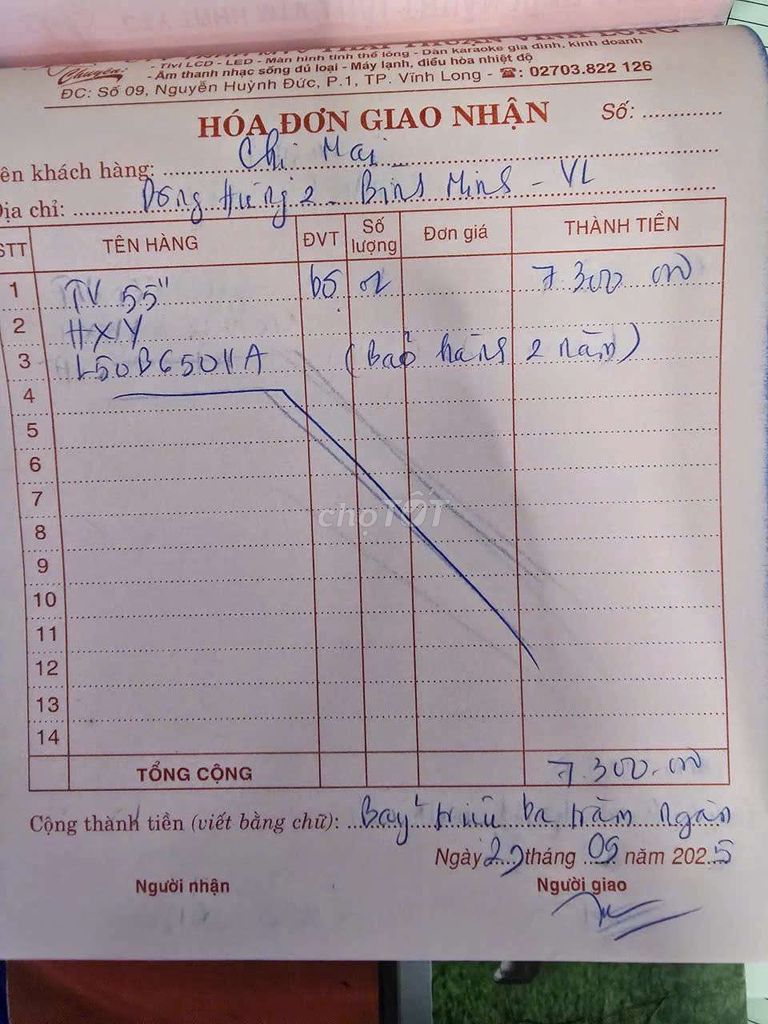 Chuyên - Tivi LCD - LED - Màn hình tinh thể lỏng - Dàn karaoke gia đình, kinh doanh
- Âm thanh nhạc sống đủ loại - Máy lạnh, điều hòa nhiệt độ
ĐC: Số 09, Nguyễn Huỳnh Đức, P.1, TP. Vĩnh Long - ☎: 02703.822 126
HÓA ĐƠN GIAO NHẬN Số: ..............
ên khách hàng: Chi Mai
Địa chỉ: Đông Hưng 2 - Bình Minh - VL
STT TÊN HÀNG ĐVT Số lượng Đơn giá THÀNH TIỀN
1 TV 55" bộ 01 7.300 000
2 HXIY
3 L50B650HA (Bảo hành 2 năm)
4
5
6
7
8
9
10
11
12
13
14
chợTỐT
TỔNG CỘNG 7.300.000
Cộng thành tiền (viết bằng chữ): Bảy triệu ba trăm ngàn
Ngày 29 tháng 09 năm 2025
Người nhận Người giao